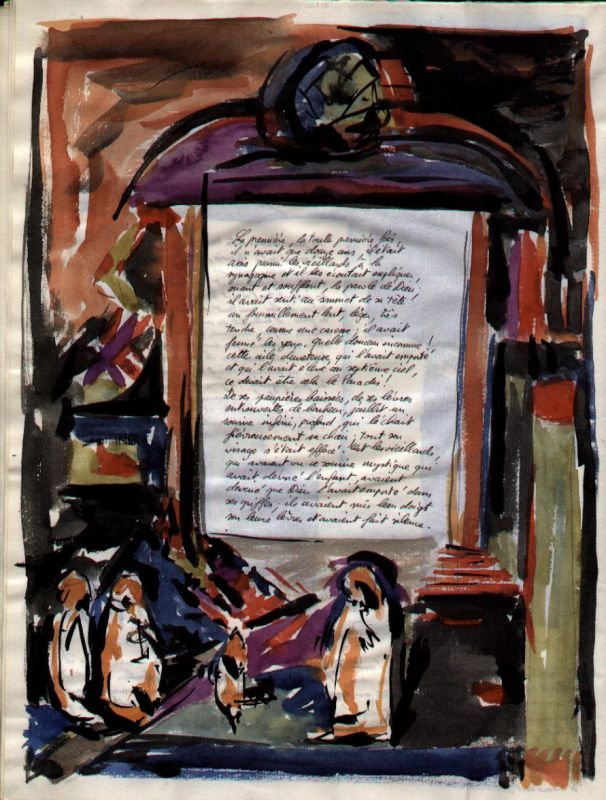 La première, la toute première fois
il n'avait que douze ans. C'était
assis parmi les vieillards à la
synagogue et il les écoutait expliquer,
suant et soufflant, la parole de Dieu!
il avait senti au sommet de sa tête
un fourmillement lent, léger, très
tendre comme une caresse; il avait
fermé les yeux. Quelle douceur inconnue!
cette aile duveteuse qui l'avait emporté
et qui l'avait élevé au septième ciel,
ce devait être cela le Paradis!
De ses paupières baissées, de ses lèvres
entrouvertes de bonheur, jaillit un
sourire infini, profond, qui léchait
fiévreusement sa chair; tout son
visage s'était effacé. Et les vieillards
qui avaient vu ce sourire mystique qui
avait dévoré l'enfant, avaient
deviné que Dieu l'avait emporté dans
ses griffes; ils avaient mis leur doigt
sur leurs lèvres et avaient fait silence.